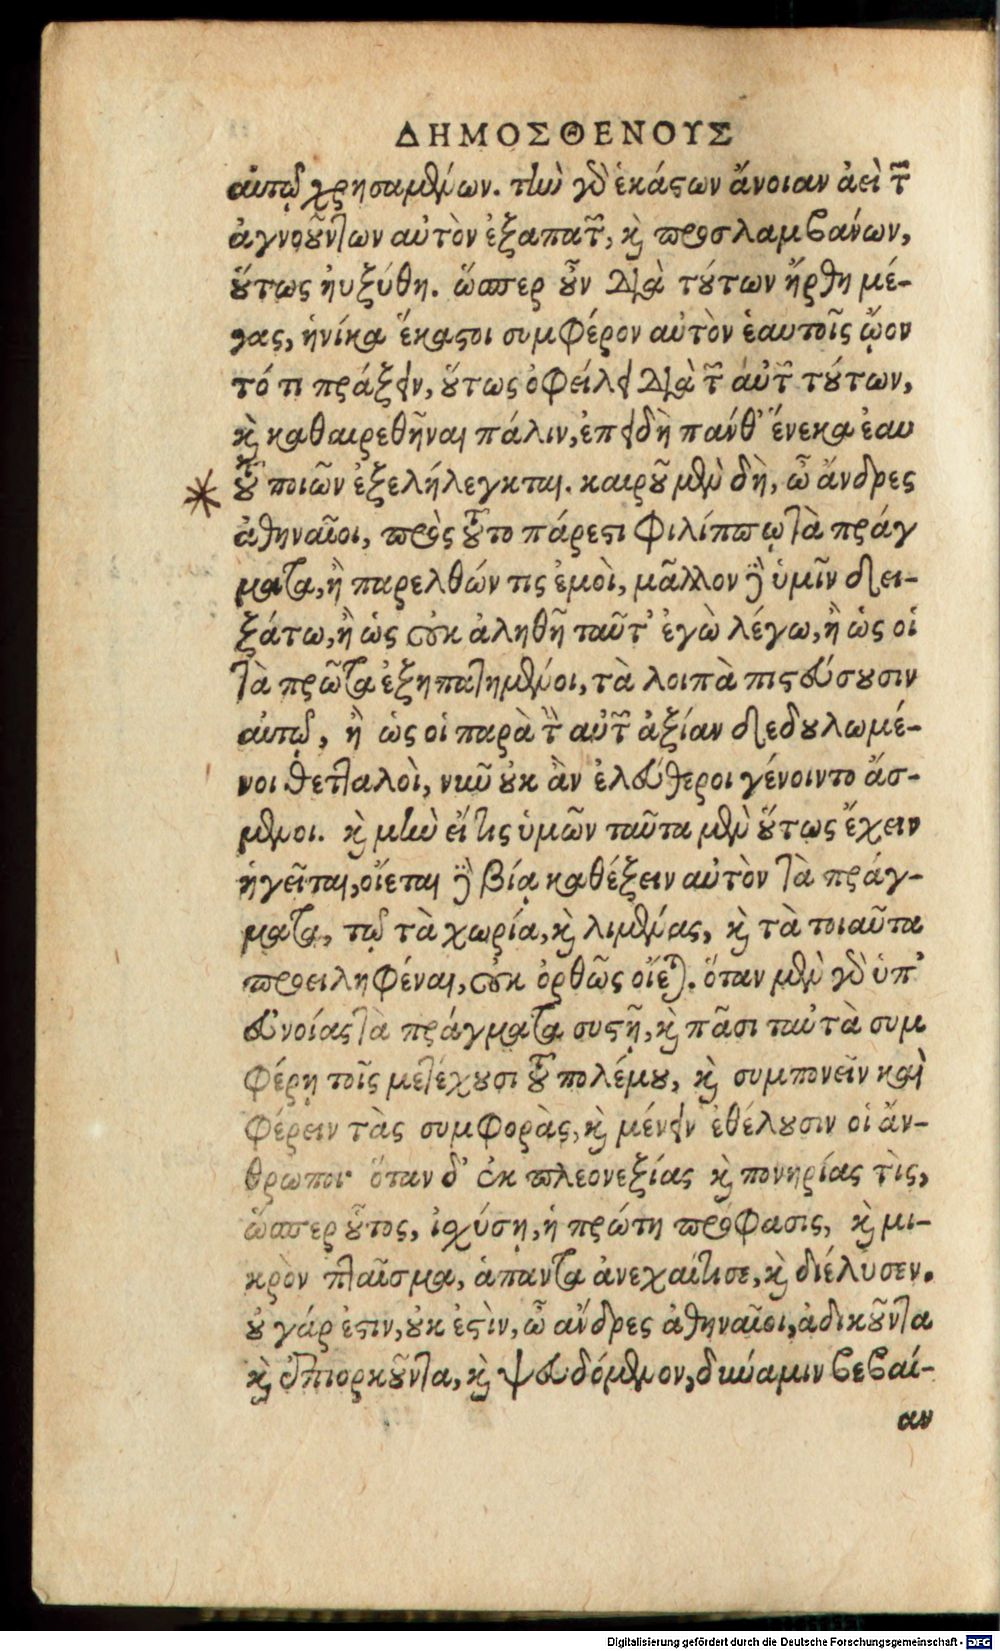 ΔΗΜΟΣΘΕΝΟΥΣ
αὐτῷ χρησαμένων. τὴν γὸ ἑκάστων ἄνοιαν ἀεὶ τῶν
ἀγνοούντων αὐτὸν ἐξαπατῶν, καὶ προσλαμβάνων,
οὕτως ηὐξύθη. ὥσπερ οὖν διὰ τούτων ἤρθη μέ-
γας, ἡνίκα ἕκαστοι συμφέρον αὐτὸν ἑαυτοῖς ᾤον
τό τι πράξειν, οὕτως ὀφείλει διὰ τῶν αὐτῶν τούτων,
καὶ καθαιρεθῆναι πάλιν, ἐπειδὴ πάνθ' ἕνεκα ἑαυ
τοῦ ποιῶν ἐξελήλεγκται. καιροῦ μὲν δὴ, ὦ ἄνδρες
ἀθηναῖοι, πρὸς τοῦτο πάρεστι Φιλίππῳ τὰ πράγ
ματα, ἢ παρελθών τις ἐμοὶ, μᾶλλον δὲ ὑμῖν δει-
ξάτω, ἢ ὡς οὐκ ἀληθῆ ταῦτ' ἐγὼ λέγω, ἢ ὡς οἱ
τὰ πρῶτα ἐξηπατημένοι, τὰ λοιπὰ πιστεύσουσιν
αὐτῷ, ἢ ὡς οἱ παρὰ τὴν αὐτῶν ἀξίαν δεδουλωμέ-
νοι θετταλοὶ, νῦν οὐκ ἂν ἐλεύθεροι γένοιντο ἄσ-
μενοι. καὶ μὴν εἴ τις ὑμῶν ταῦτα μὲν οὕτως ἔχειν
ἡγεῖται, οἴεται δὲ βίᾳ καθέξειν αὐτὸν τὰ πράγ-
ματα, τῷ τὰ χωρία, καὶ λιμένας, καὶ τὰ τοιαῦτα
προειληφέναι, οὐκ ὀρθῶς οἴεται. ὅταν μὲν γὸ ὑπ'
εὐνοίας τὰ πράγματα συστῇ, καὶ πᾶσι ταὐτὰ συμ
φέρῃ τοῖς μετέχουσι τοῦ πολέμου, καὶ συμπονεῖν καὶ
φέρειν τὰς συμφορὰς, καὶ μένειν ἐθέλουσιν οἱ ἄν-
θρωποι· ὅταν δ' ἐκ πλεονεξίας καὶ πονηρίας τὶς,
ὥσπερ οὗτος, ἰσχύσῃ, ἡ πρώτη πρόφασις, καὶ μι-
κρὸν πταῖσμα, ἅπαντα ἀνεχαίτισε, καὶ διέλυσεν.
οὐ γάρ ἐστιν, οὐκ ἐστὶν, ὦ ἄνδρες ἀθηναῖοι, ἀδικοῦντα
καὶ ἐπιορκοῦντα, καὶ ψευδόμενον, δύναμιν βεβαί-
αν
Digitalisierung gefördert durch die Deutsche Forschungsgemeinschaft - DFG